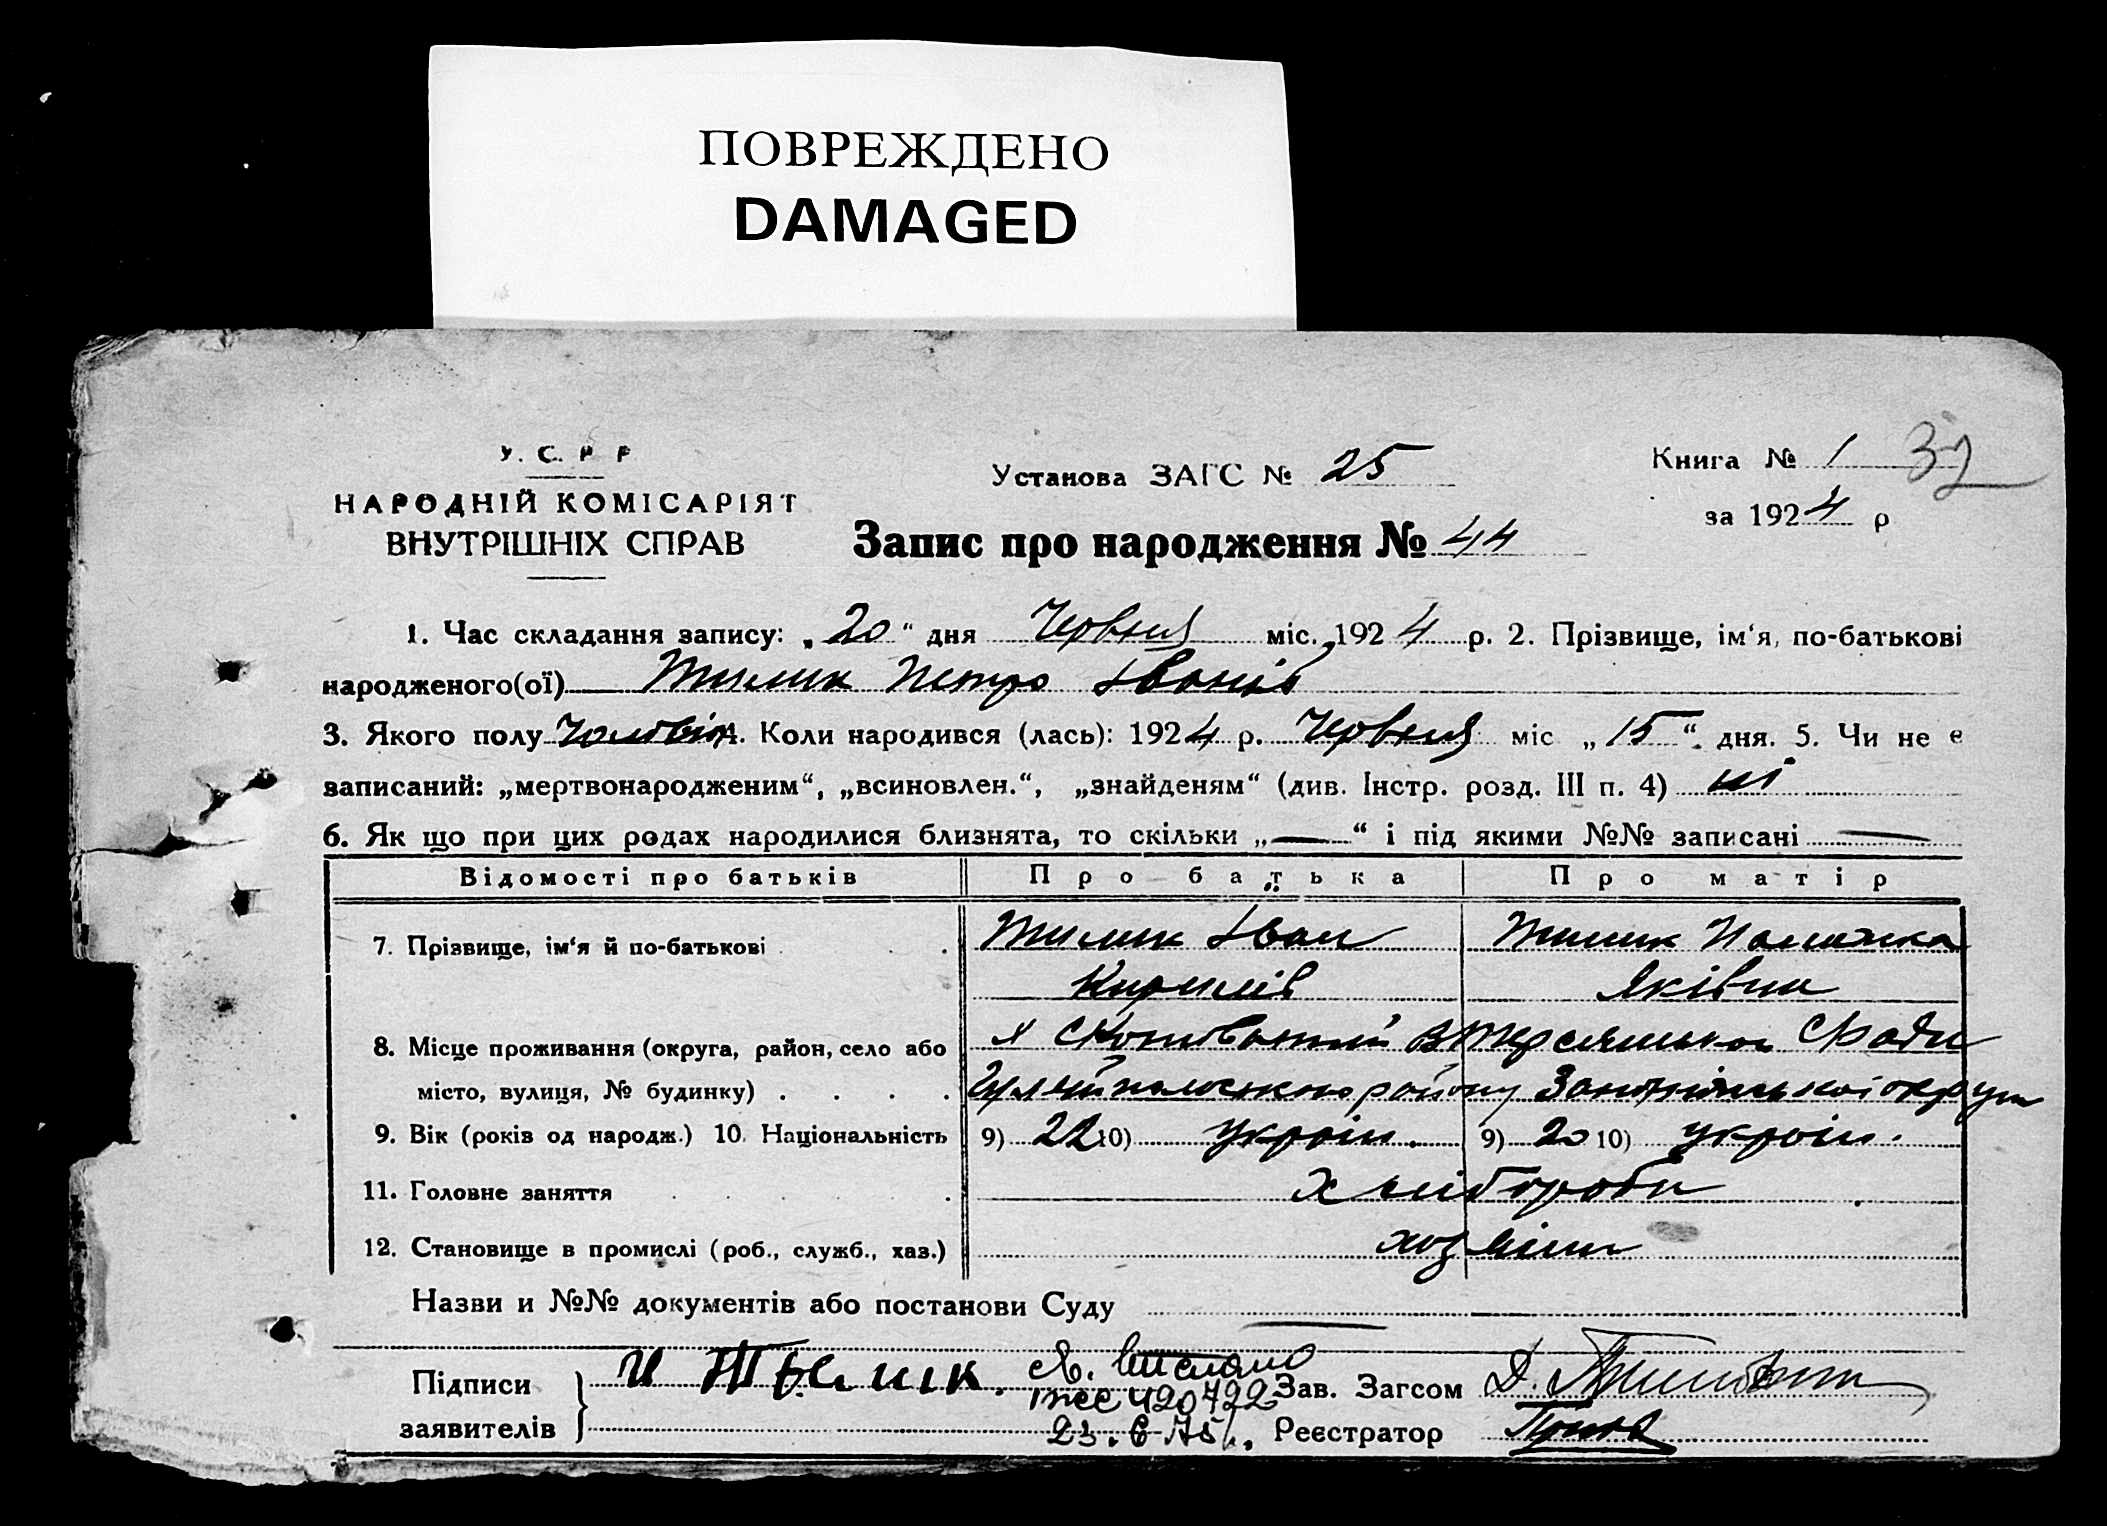 ПОВРЕЖДЕНО
DAMAGED
У. С. Р. Р.
НАРОДНІЙ КОМІСАРІЯТ
ВНУТРІШНІХ СПРАВ
Установа ЗАГС № 25
Запис про народження № 44
Книга № 1
32
за 1924 р
1. Час складання запису: „20“ дня Червня міс. 1924 р. 2. Прізвище, ім‘я, по-батькові
народженого(ої) Тилик Петро Іванів
3. Якого полу Чоловіч 4. Коли народився (лась): 1924 р. Червня міс „15“ дня. 5. Чи не є
записаний: „мертвонародженим“, „всиновлен.“, „знайденям“ (див. Інстр. розд. III п. 4) ні
6. Як що при цих родах народилися близнята, то скільки „—“ і під якими №№ записані —
Відомості про батьків Про батька Про матір
7. Прізвище, ім‘я й по-батькові Тилик Іван Тилик
Кирилів Яківна
8. Місце проживання (округа, район, село або х Сради
місто, вулиця, № будинку) району округи
9. Вік (років од народж.) 10. Національність 9) 22 10) україн. 9) 20 10) україн.
11. Головне заняття Хлібороби
12. Становище в промислі (роб., служб., хаз.)
Назви и №№ документів або постанови Суду —
Підписи И Тылик.
заявителів
420722
23.6-75г.
Зав. Загсом Д.
Реєстратор